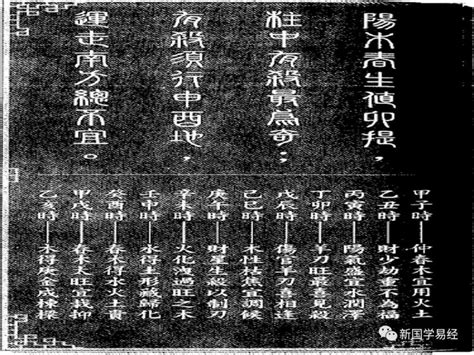 陽木春生值卯提，
柱中有殺最為奇；
有殺須行申酉地，
運走南方總不宜。
甲子時——仲春木宜用火土
乙丑時——財少劫重不為福
丙寅時——陽氣盛宜水潤澤
丁卯時——羊刃旺最喜見殺
戊辰時——傷官羊刃喜相逢
己巳時——木性枯焦宜調候
庚午時——財星生殺以制刃
辛未時——火化洩過旺之木
壬申時——水得土形蔽歸化
癸酉時——春木得水火土貴
甲戌時——春木太旺宜裁抑
乙亥時——木得庚金成棟樑
新国学易经